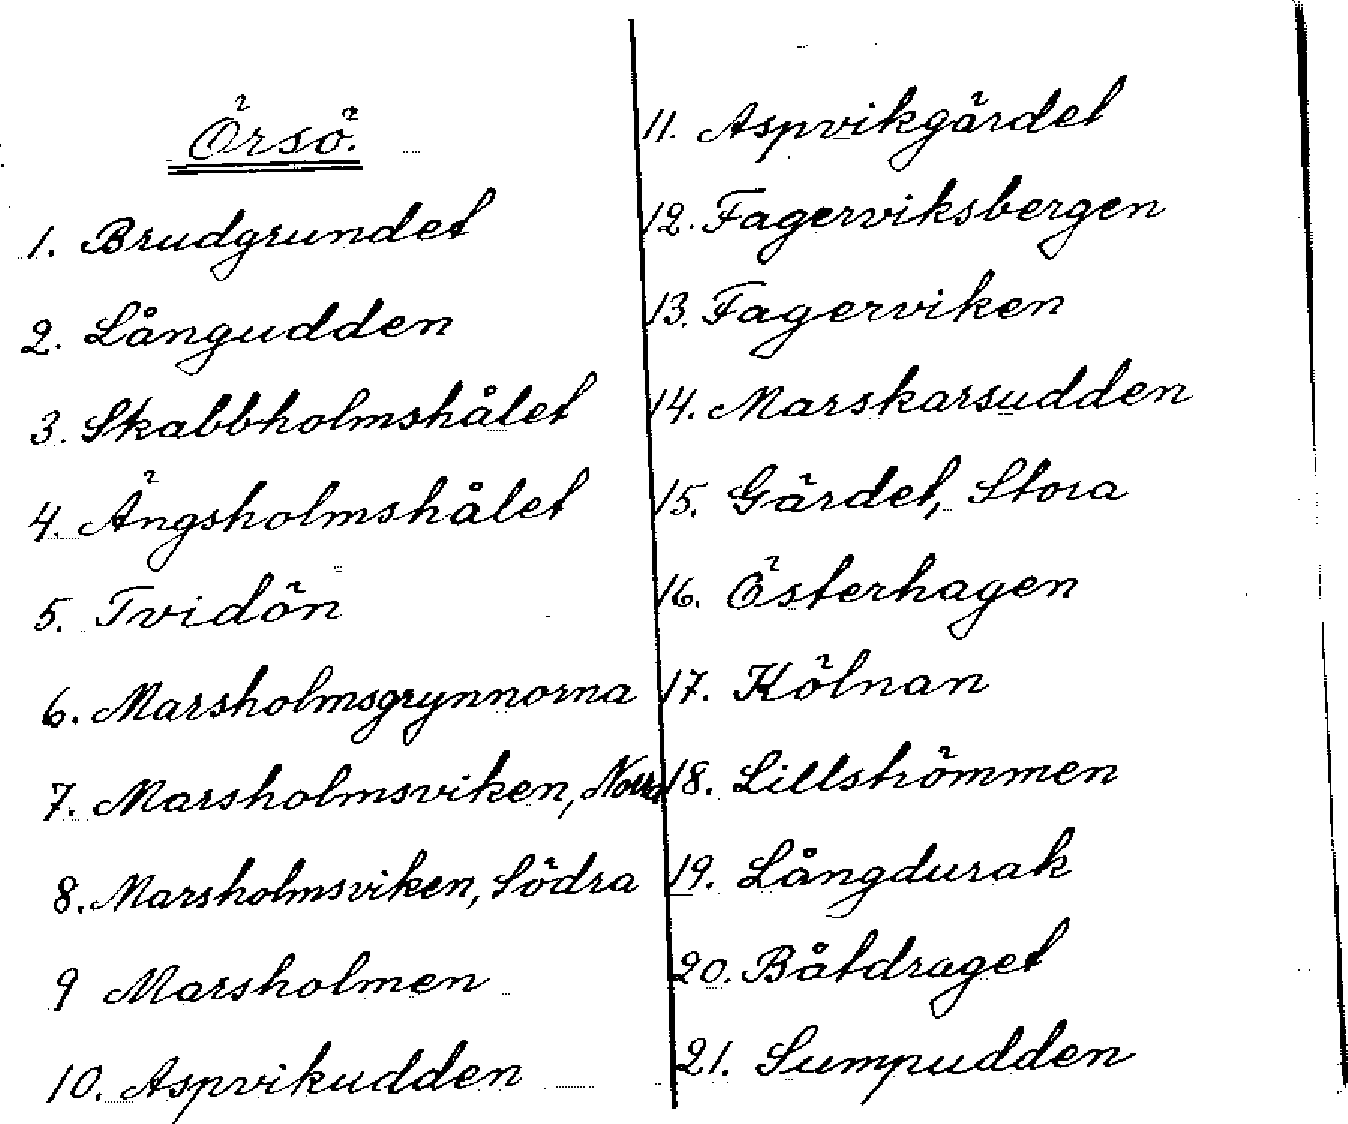 Örsö.
1. Brudgrundet
2. Långudden
3. Skabbholmshålet
4. Ängsholmshålet
5. Tvidön
6. Marsholmsgrynnorna
7. Marsholmsviken, Norra
8. Marsholmsviken, Södra
9 Marsholmen
10. Aspvikudden
11. Aspvikgärdet
12. Fagerviksbergen
13. Fagerviken
14. Marskarsudden
15. Gärdet, Stora
16. Österhagen
17. Kölnan
18. Lillströmmen
19. Långdurak
20. Båtdraget
21. Sumpudden